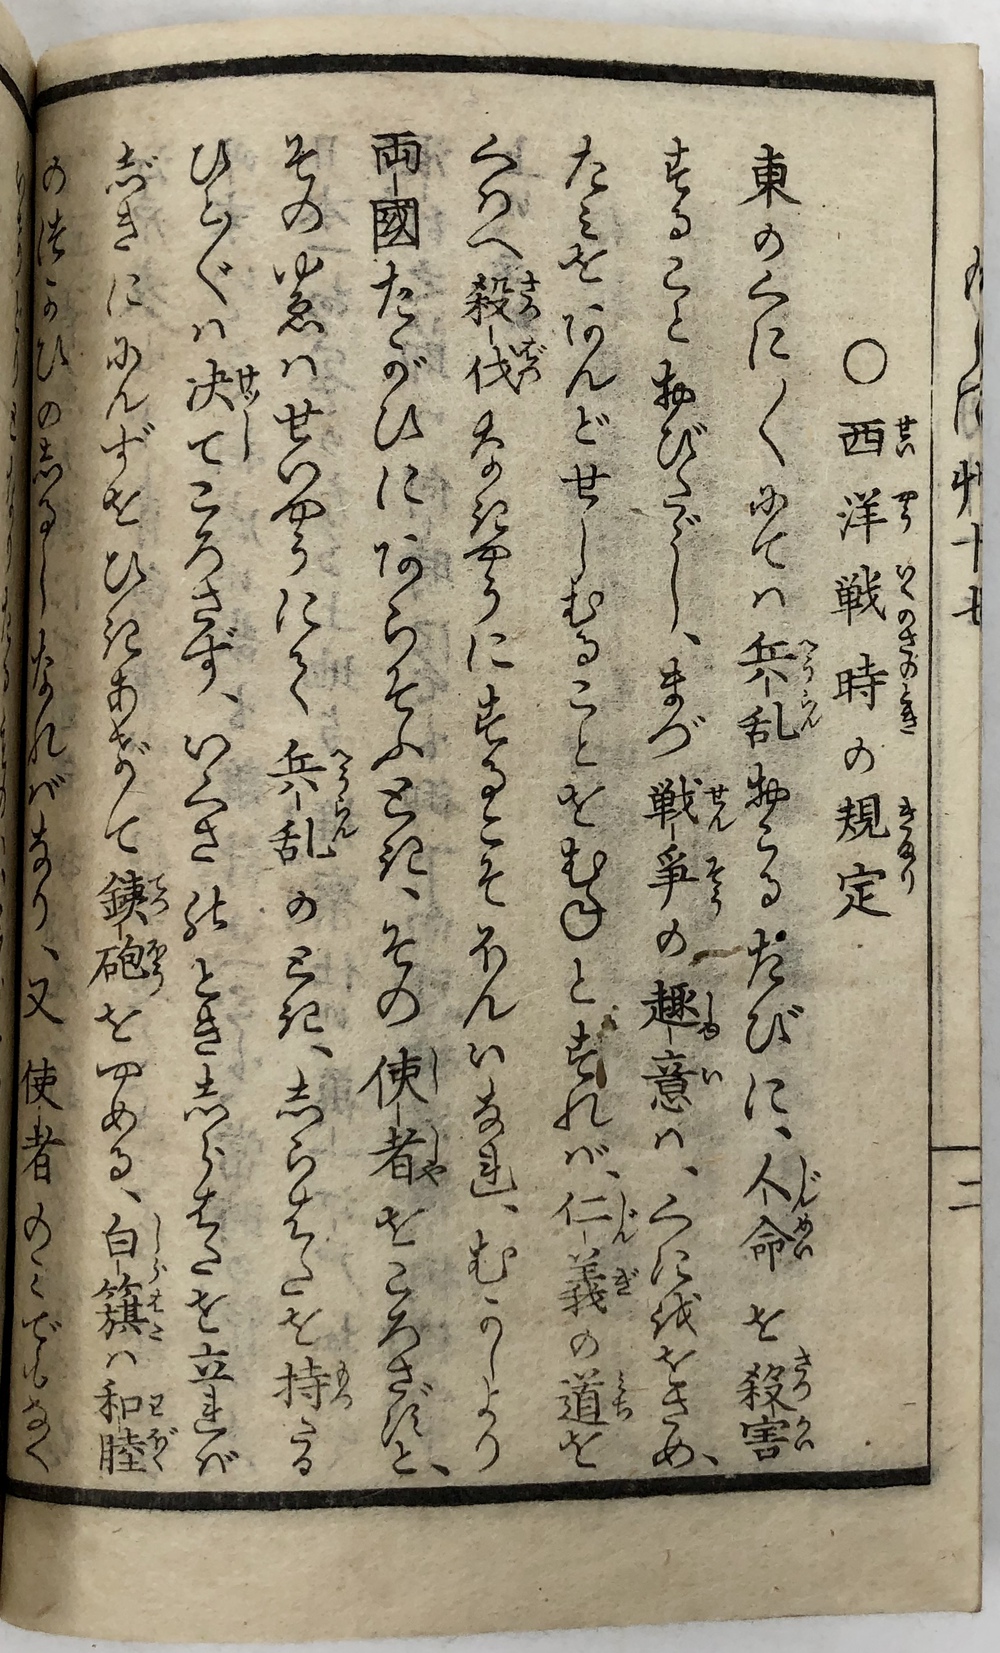 ○西洋戦時の規定
東のくに〱にては兵乱おこるたびに、人命を殺害
することおびたゞし、まづ戦争の趣意は、くにをおさめ、
たみをあんどせしむることをむねとすれば、仁義の道を
くはへ殺伐なきやうにするこそほんいなれ、むかしより
両國たがひにあらそふとき、その使者をころさずと、
そのゆゑはせいやうにて兵乱のとき、しらはたを持たる
ひとをば決てころさず、いくさのときしらはたを立れば
じきににんずをひきあげて銕砲をやめる、白籏は和睦
のつかひのしるしなればなり、又使者のみでもなく
二